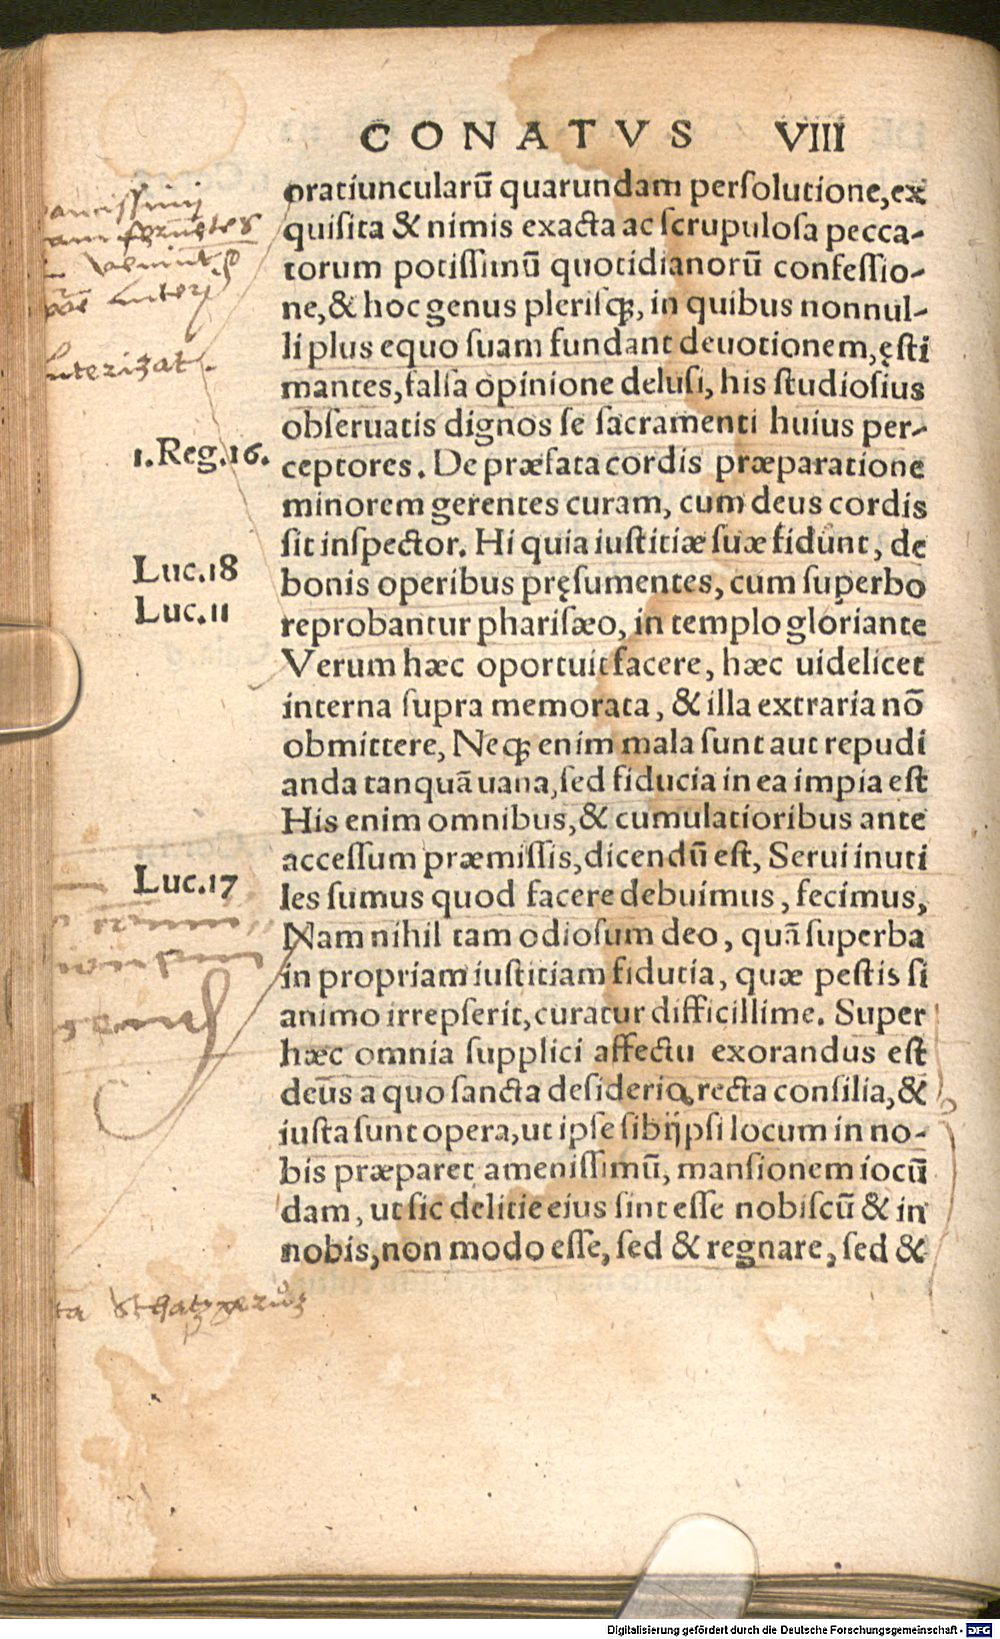 CONATVS VIII
oratiuncularū quarundam persolutione, ex
quisita & nimis exacta ac scrupulosa pecca-
torum potissimū quotidianorū confessio-
ne, & hoc genus plerisqꝫ, in quibus nonnul-
li plus equo suam fundant deuotionem, ęsti
mantes, falsa opinione delusi, his studiosius
obseruatis dignos se sacramenti huius per-
1. Reg. 16.
ceptores. De præfata cordis præparatione
minorem gerentes curam, cum deus cordis
sit inspector. Hi quia iustitiæ suæ fidunt, de
Luc. 18
bonis operibus pręsumentes, cum superbo
Luc. 11
reprobantur pharisæo, in templo gloriante
Verum hæc oportuit facere, hæc uidelicet
interna supra memorata, & illa extraria nō
obmittere, Neqꝫ enim mala sunt aut repudi
anda tanquā uana, sed fiducia in ea impia est
His enim omnibus, & cumulatioribus ante
accessum præmissis, dicendū est, Serui inuti
Luc. 17
les sumus quod facere debuimus, fecimus,
Nam nihil tam odiosum deo, quā superba
in propriam iustitiam fidutia, quæ pestis si
animo irrepserit, curatur difficillime. Super
hæc omnia supplici affectu exorandus est
deus a quo sancta desideria, recta consilia, &
iusta sunt opera, ut ipse sibijpsi locum in no-
bis præparet amenissimū, mansionem iocū
dam, ut sic delitie eius sint esse nobiscū & in
nobis, non modo esse, sed & regnare, sed &
Digitalisierung gefördert durch die Deutsche Forschungsgemeinschaft - DFG